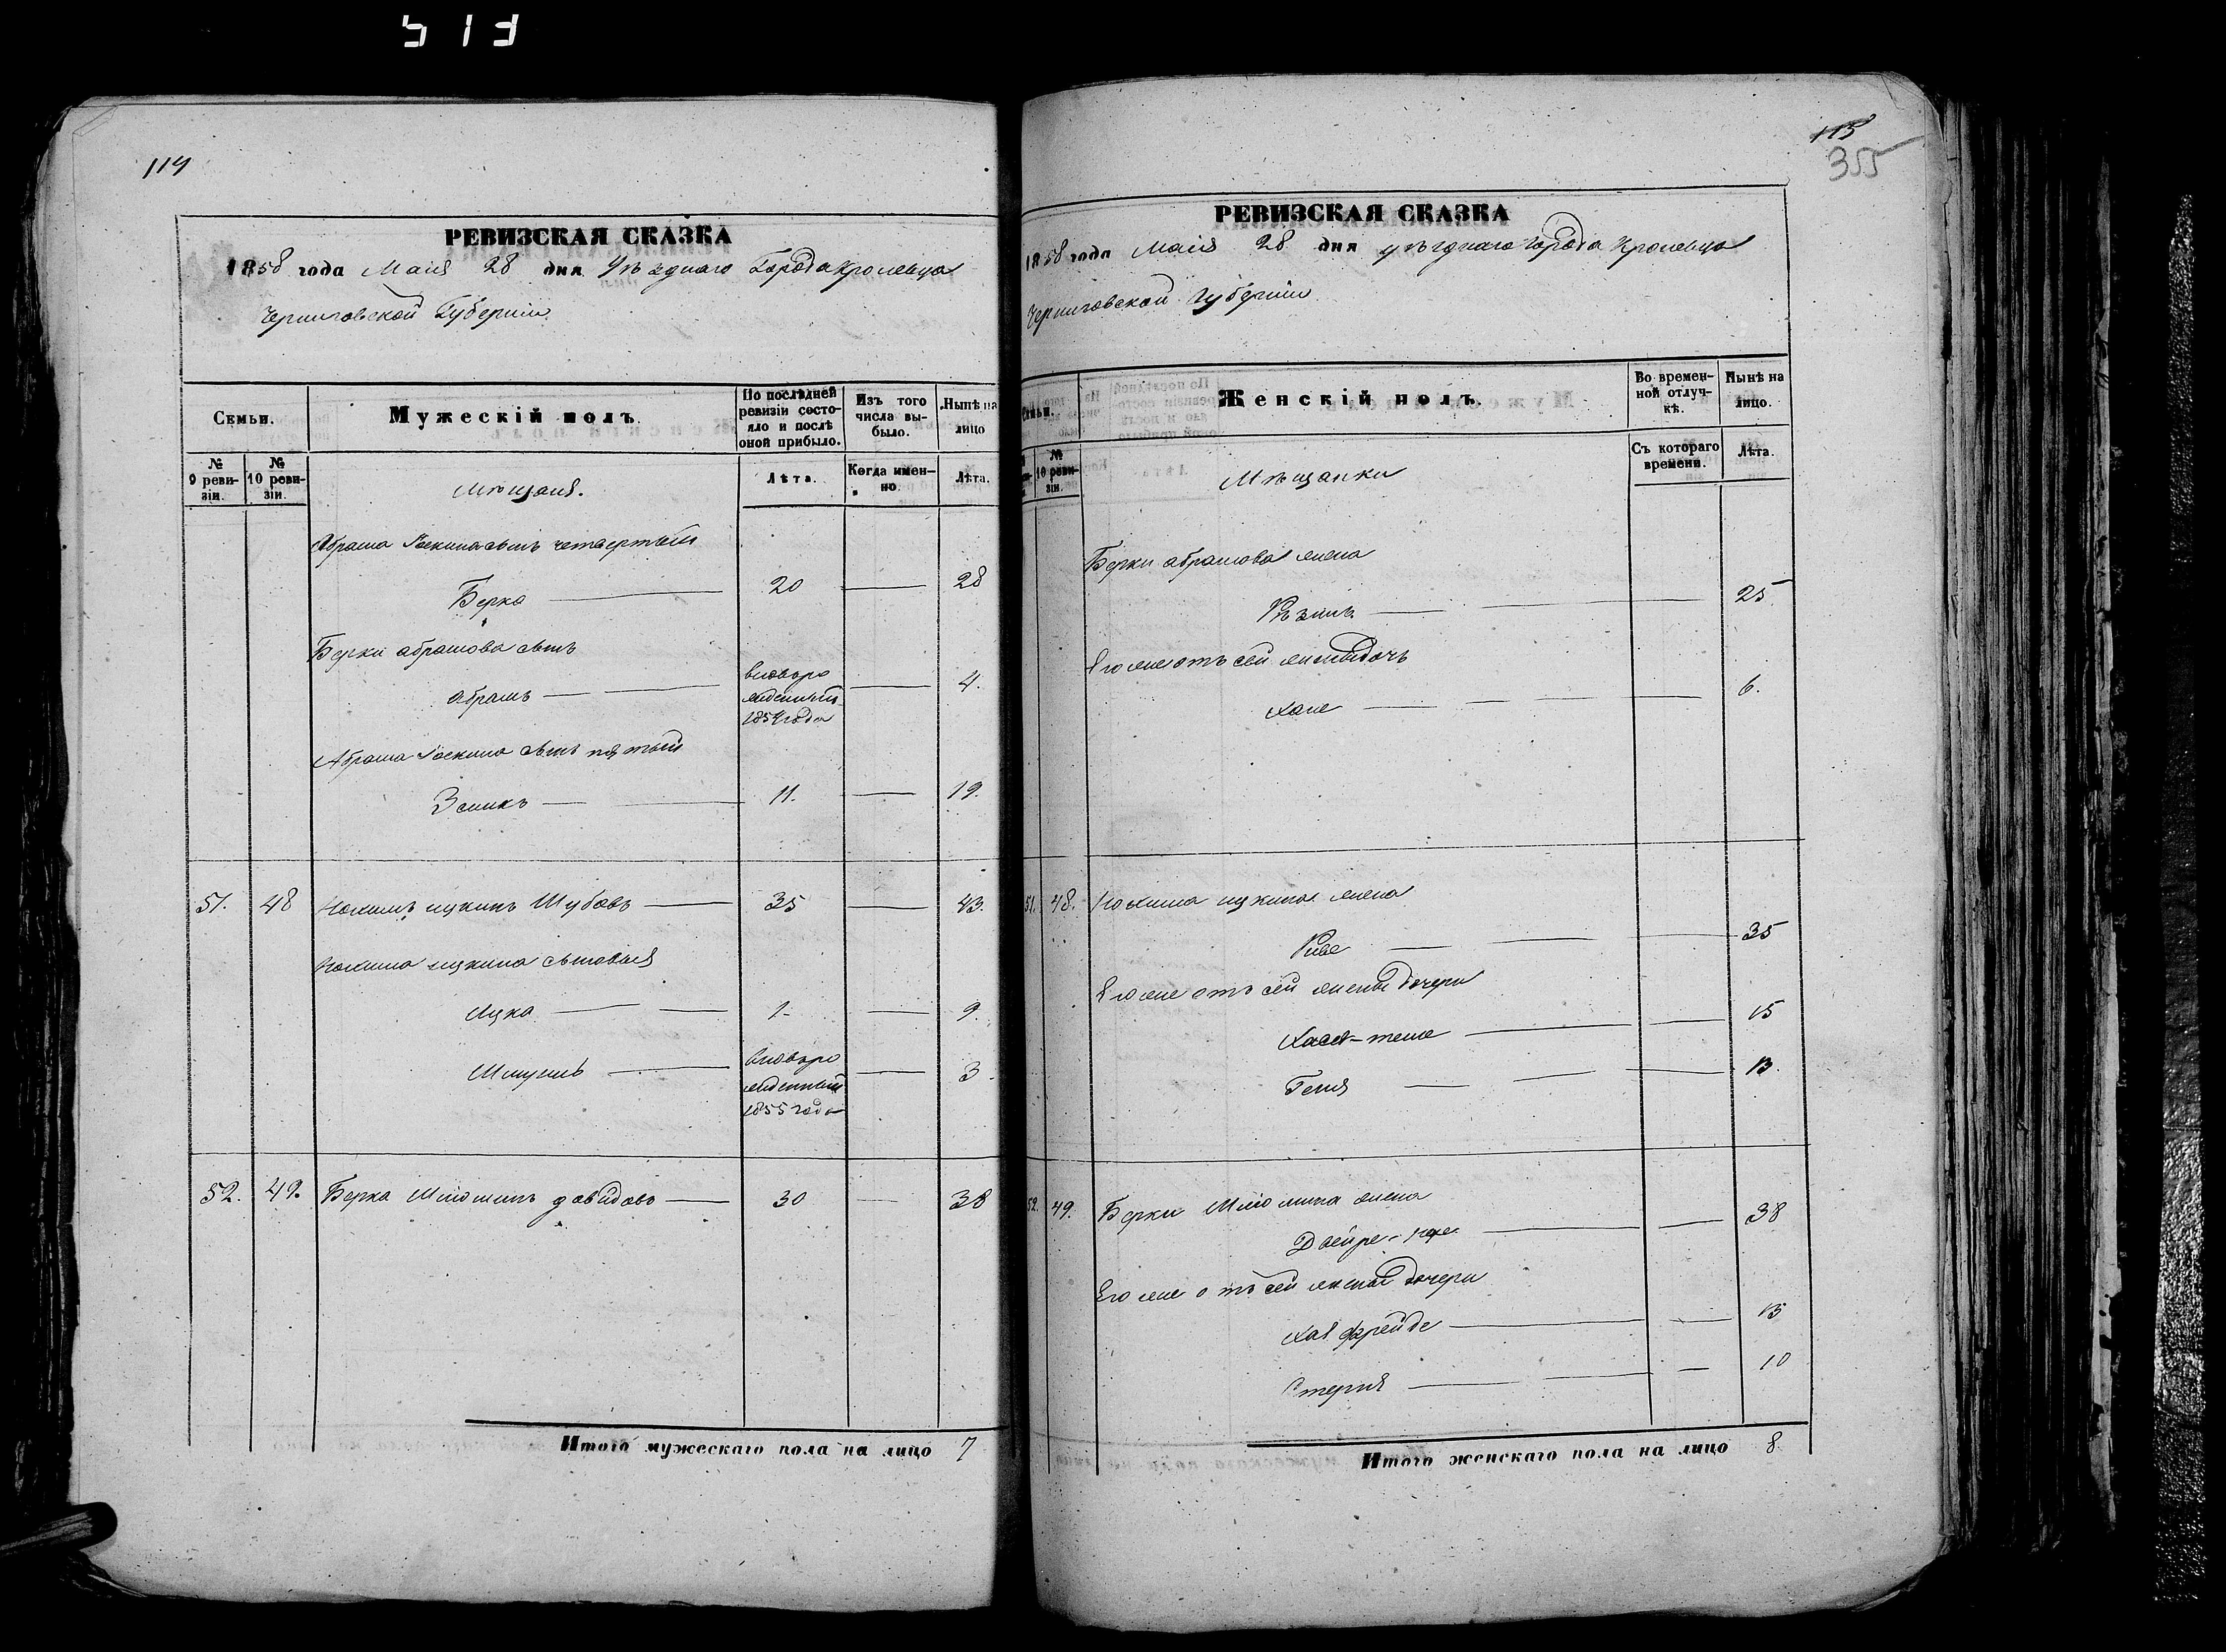 513
114
РЕВИЗСКАЯ СКАЗКА
1858 года Маія 28 дня Уѣзднаго Города Кролевца
Черниговской Губерніи
Семьи.
Мужескій полъ.
По послѣдней ревизіи состояло и послѣ оной прибыло.
Изъ того числа выбыло.
Нынѣ на лицо
№ 9 ревизіи.
№ 10 ревизіи.
Мѣщане.
Лѣта.
Когда именно.
Лѣта.
Абрама сынъ четвертый
Берка 20 28
Берки абрамова сынъ
абрамъ новорожденный 1854 года 4.
Абрама сынъ пятый
11. 19.
51. 48 Нохимъ ицкинъ Шубовъ 35 43.
Нохима ицкина сыновья
Ицка 1 9.
Шмуиль новорожденный 1855 года 3
52. 49. Берка давидовъ 30 38
Итого мужескаго пола на лицо 7
115
355
РЕВИЗСКАЯ СКАЗКА
1858 года Маія 28 дня уѣзднаго города Кролевца
Черниговской Губерніи
Женскій полъ.
Во временной отлучкѣ.
Нынѣ на лицо.
№ 10 ревизіи.
Мѣщанки
Съ котораго времени.
Лѣта.
Берки абрамова жена
25.
Его же отъ сей жены дочь
Хане 6.
51. 48. Нохима ицкина жена
Риве 35
Его же отъ сей жены дочери
15
Геня 13.
52. 49. Берки жена
38
Его же отъ сей жены дочери
Хая фрейде 13
Стерня 10
Итого женскаго пола на лицо 8